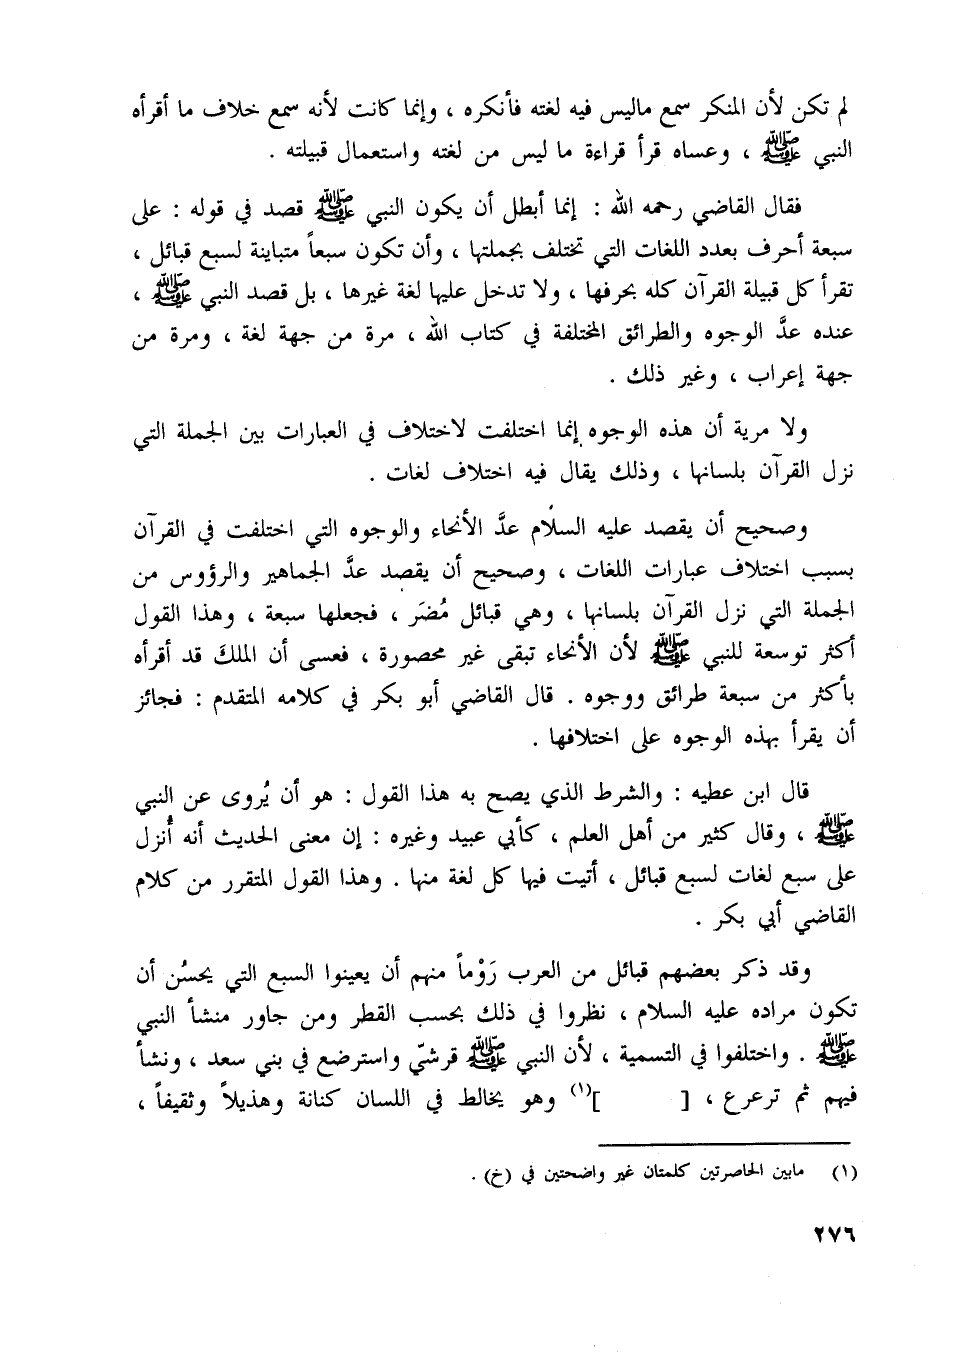 لم تكن لأن المنكر سمع ماليس فيه لغته فأنكره ، وإنما كانت لأنه سمع خلاف ما أقرأه
النبي ﷺ ، وعساه قرأ قراءة ما ليس من لغته واستعمال قبيلته .
فقال القاضي رحمه الله : إنما أبطل أن يكون النبي ﷺ قصد في قوله : على
سبعة أحرف بعدد اللغات التي تختلف بجملتها ، وأن تكون سبعاً متباينة لسبع قبائل ،
تقرأ كل قبيلة القرآن كله بحرفها ، ولا تدخل عليها لغة غيرها ، بل قصد النبي ﷺ ،
عنده عدَّ الوجوه والطرائق المختلفة في كتاب الله ، مرة من جهة لغة ، ومرة من
جهة إعراب ، وغير ذلك .
ولا مرية أن هذه الوجوه إنما اختلفت لاختلاف في العبارات بين الجملة التي
نزل القرآن بلسانها ، وذلك يقال فيه اختلاف لغات .
وصحيح أن يقصد عليه السلام عدَّ الأنحاء والوجوه التي اختلفت في القرآن
بسبب اختلاف عبارات اللغات ، وصحيح أن يقصد عدَّ الجماهير والرؤوس من
الجملة التي نزل القرآن بلسانها ، وهي قبائل مُضَر ، فجعلها سبعة ، وهذا القول
أكثر توسعة للنبي ﷺ لأن الأنحاء تبقى غير محصورة ، فعسى أن الملكَ قد أقرأه
بأكثر من سبعة طرائق ووجوه . قال القاضي أبو بكر في كلامه المتقدم : فجائز
أن يقرأ بهذه الوجوه على اختلافها .
قال ابن عطيه : والشرط الذي يصح به هذا القول : هو أن يُروى عن النبي
ﷺ ، وقال كثير من أهل العلم ، كأبي عبيد وغيره : إن معنى الحديث أنه أُنزل
على سبع لغات لسبع قبائل ، أتيت فيها كل لغة منها . وهذا القول المتقرر من كلام
القاضي أبي بكر .
وقد ذكر بعضهم قبائل من العرب رَوْماً منهم أن يعينوا السبع التي يحسُن أن
تكون مراده عليه السلام ، نظروا في ذلك بحسب القطر ومن جاور منشأ النبي
ﷺ . واختلفوا في التسمية ، لأن النبي ﷺ قرشيّ واسترضع في بني سعد ، ونشأ
فيهم ثم ترعرع ، [ ](١) وهو يخالط في اللسان كنانة وهذيلاً وثقيفاً ،
(١) مابين الحاصرتين كلمتان غير واضحتين في (خ) .
٢٧٦